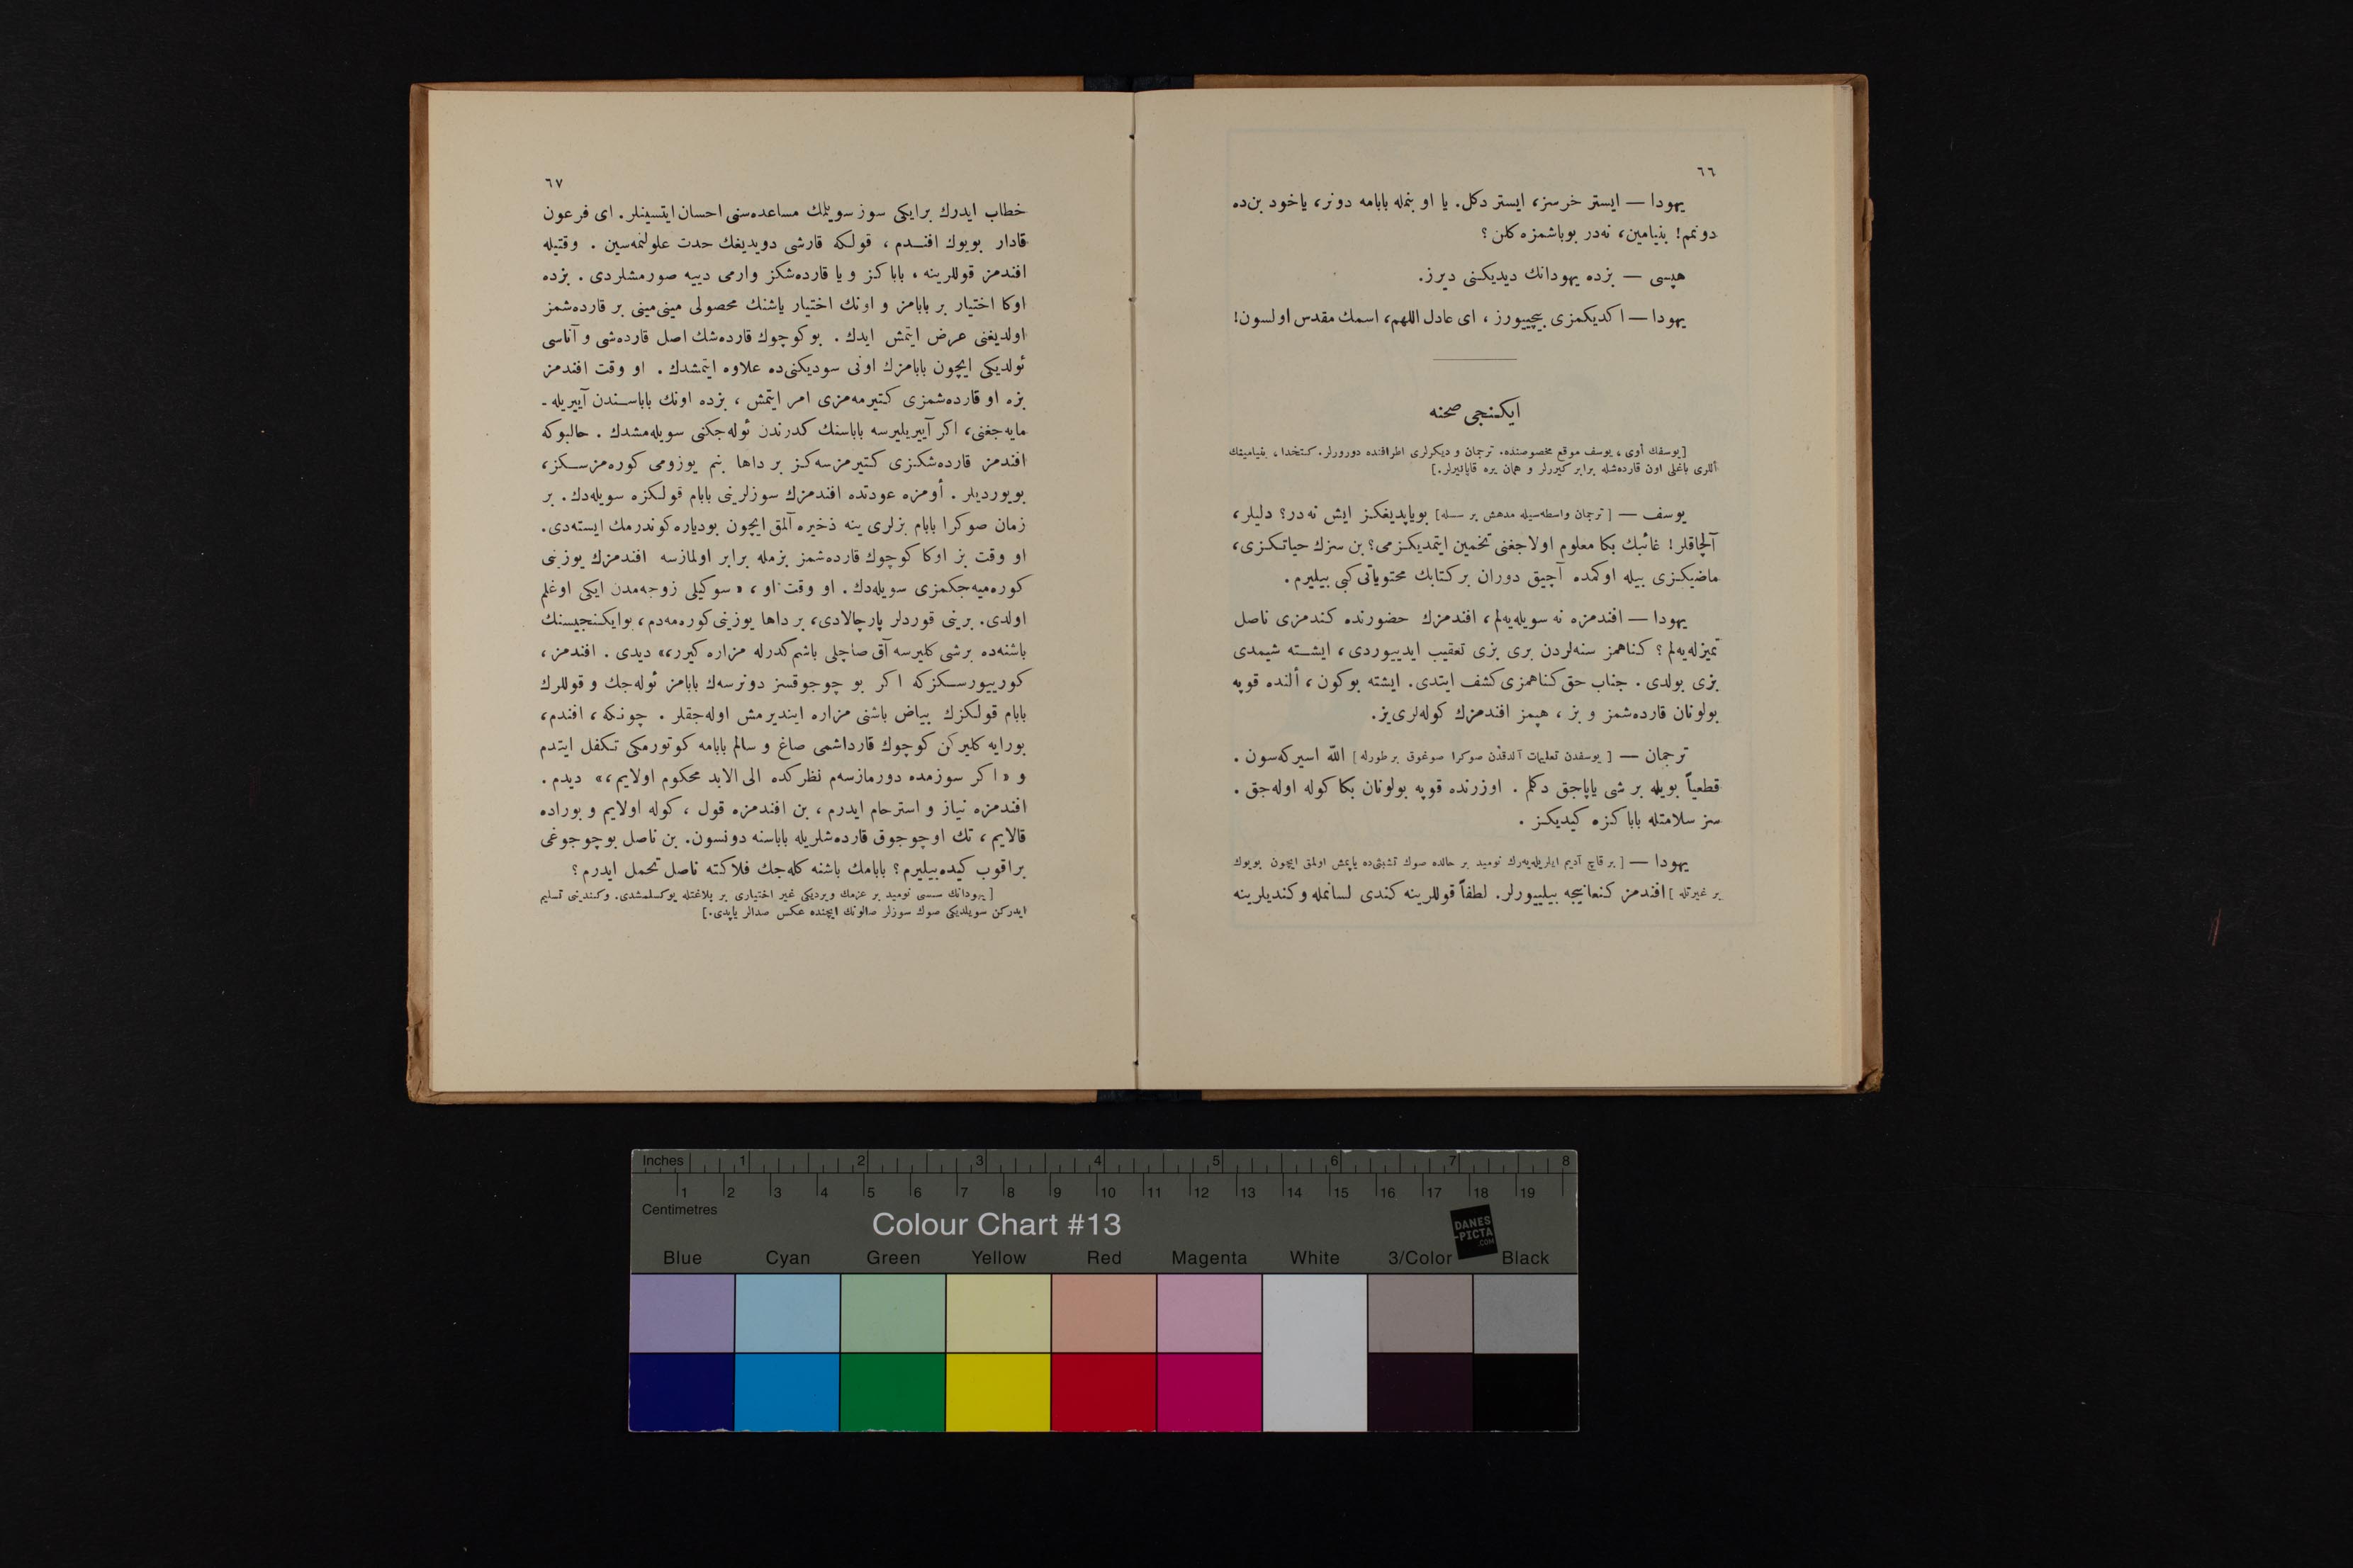 ٦٦
یهودا — ایستر خرسز، ایستر دكل. یا او بنمله بابامه دونر، یاخود بن‌ده
دونمم! بنیامین، نه‌در بوباشمزه كلن؟
هپسی — بزده یهودانك دیدیكنی دیرز.
یهودا — اكدیكمزی بیچییورز، ای عادل اللهم، اسمك مقدس اولسون!
ایكنجی صحنه
[یوسفك أوی، یوسف موقع مخصوصنده. ترجمان و دیكرلری اطرافنده دورورلر. كتخدا، بنیامینك
أللری باغلی اون قارده‌شله برابر كیررلر و همان یره قاپانیرلر.]
یوسف — [ترجمان واسطه‌سیله مدهش بر سسله] بویاپدیغكز ایش نه‌در؟ دلیلر،
آلچاقلر! غائبك بكا معلوم اولاجغنی تخمین ایتمدیكزمی؟ بن سزك حیاتكزی،
ماضیكزی بیله اوكمده آچیق دوران بركتابك محتویاتی كبی بیلیرم.
یهودا — افندمزه نه سویله‌یه‌لم، افندمزك حضورنده كندمزی ناصل
تمیزله‌یه‌لم؟ كناهمز سنه‌لردن بری بزی تعقیب ایدییوردی، ایشته شیمدی
بزی بولدی. جناب حق كناهمزی كشف ایتدی. ایشته بوكون، ألنده قوپه
بولونان قارده‌شمز و بز، هپمز افندمزك كوله‌لری‌یز.
ترجمان — [یوسفدن تعلیمات آلدقدن صوكرا صوغوق برطورله] اللّه اسیركه‌سون.
قطعیاً بویله بر شی یاپاجق دكلم. اوزرنده قوپه بولونان بكا كوله اوله‌جق.
سز سلامتله باباكزه كیدیكز.
یهودا — [برقاچ آدیم ایلریله‌یه‌رك نومید بر حالده صوك تشبثی‌ده یاپمش اولمق ایچون بویوك
بر غیرتله] افندمز كنعانیجه بیلییورلر. لطفاً قوللرینه كندی لسانمله وكندیلرینه
٦٧
خطاب ایدرك برایكی سوز سویلمك مساعده‌سنی احسان ایتسینلر. ای فرعون
قادار بویوك افندم، قولكه قارشی دویدیغك حدت علولنمه‌سین. وقتیله
افندمز قوللرینه، باباكز و یا قارده‌شكز وارمی دییه صورمشلردی. بزده
اوكا اختیار بر بابامز و اونك اختیار یاشنك محصولی مینی‌مینی بر قارده‌شمز
اولدیغنی عرض ایتمش ایدك. بوكوچوك قارده‌شك اصل قارده‌شی و آناسی
ئولدیكی ایچون بابامزك اونی سودیكنی‌ده علاوه ایتمشدك. او وقت افندمز
بزه او قارده‌شمزی كتیرمه‌مزی امر ایتمش، بزده اونك باباسندن آییریله‌-
مایه‌جغنی، اكر آییریلیرسه باباسنك كدرندن ئوله‌جكنی سویله‌مشدك. حالبوكه
افندمز قارده‌شكزی كتیرمزسه‌كز بر داها بنم یوزومی كوره‌مزسكز،
بویوردیلر. أومزه عودتده افندمزك سوزلرینی بابام قولكزه سویله‌دك. بر
زمان صوكرا بابام بزلری ینه ذخیره آلمق ایچون بودیاره كوندرمك ایسته‌دی.
او وقت بز اوكا كوچوك قارده‌شمز بزمله برابر اولمازسه افندمزك یوزینی
كوره‌میه‌جكمزی سویله‌دك. او وقت او، «سوكیلی زوجه‌مدن ایكی اوغلم
اولدی. برینی قوردلر پارچالادی، بر داها یوزینی كوره‌مه‌دم، بوایكنجیسنك
باشنه‌ده برشی كلیرسه آق صاچلی باشم كدرله مزاره كیرر،» دیدی. افندمز،
كورییورسكزكه اكر بو چوجوقسز دونرسه‌ك بابامز ئوله‌جك و قوللرك
بابام قولكزك بیاض باشنی مزاره ایندیرمش اوله‌جقلر. چونكه، افندم،
بورایه كلیركن كوچوك قارداشمی صاغ و سالم بابامه كوتورمكی تكفل ایتدم
و «اكر سوزمده دورمازسه‌م نظركده الی‌الابد محكوم اولایم،» دیدم.
افندمزه نیاز و استرحام ایدرم، بن افندمزه قول، كوله اولایم و بوراده
قالایم، تك اوچوجوق قارده‌شلریله باباسنه دونسون. بن ناصل بوچوجوغی
براقوب كیده‌بیلیرم؟ بابامك باشنه كله‌جك فلاكته ناصل تحمل ایدرم؟
[یهودانك سسی نومید بر عزمك ویردیكی غیر اختیاری بر بلاغتله یوكسلمشدی. وكندینی تسلیم
ایدركن سویلدیكی صوك سوزلر صالونك ایچنده عكس صدالر یاپدی.]
Inches 1 2 3 4 5 6 7 8
1 2 3 4 5 6 7 8 9 10 11 12 13 14 15 16 17 18 19
Centimetres
Colour Chart #13
DANES
-PICTA
.COM
Blue Cyan Green Yellow Red Magenta White 3/Color Black